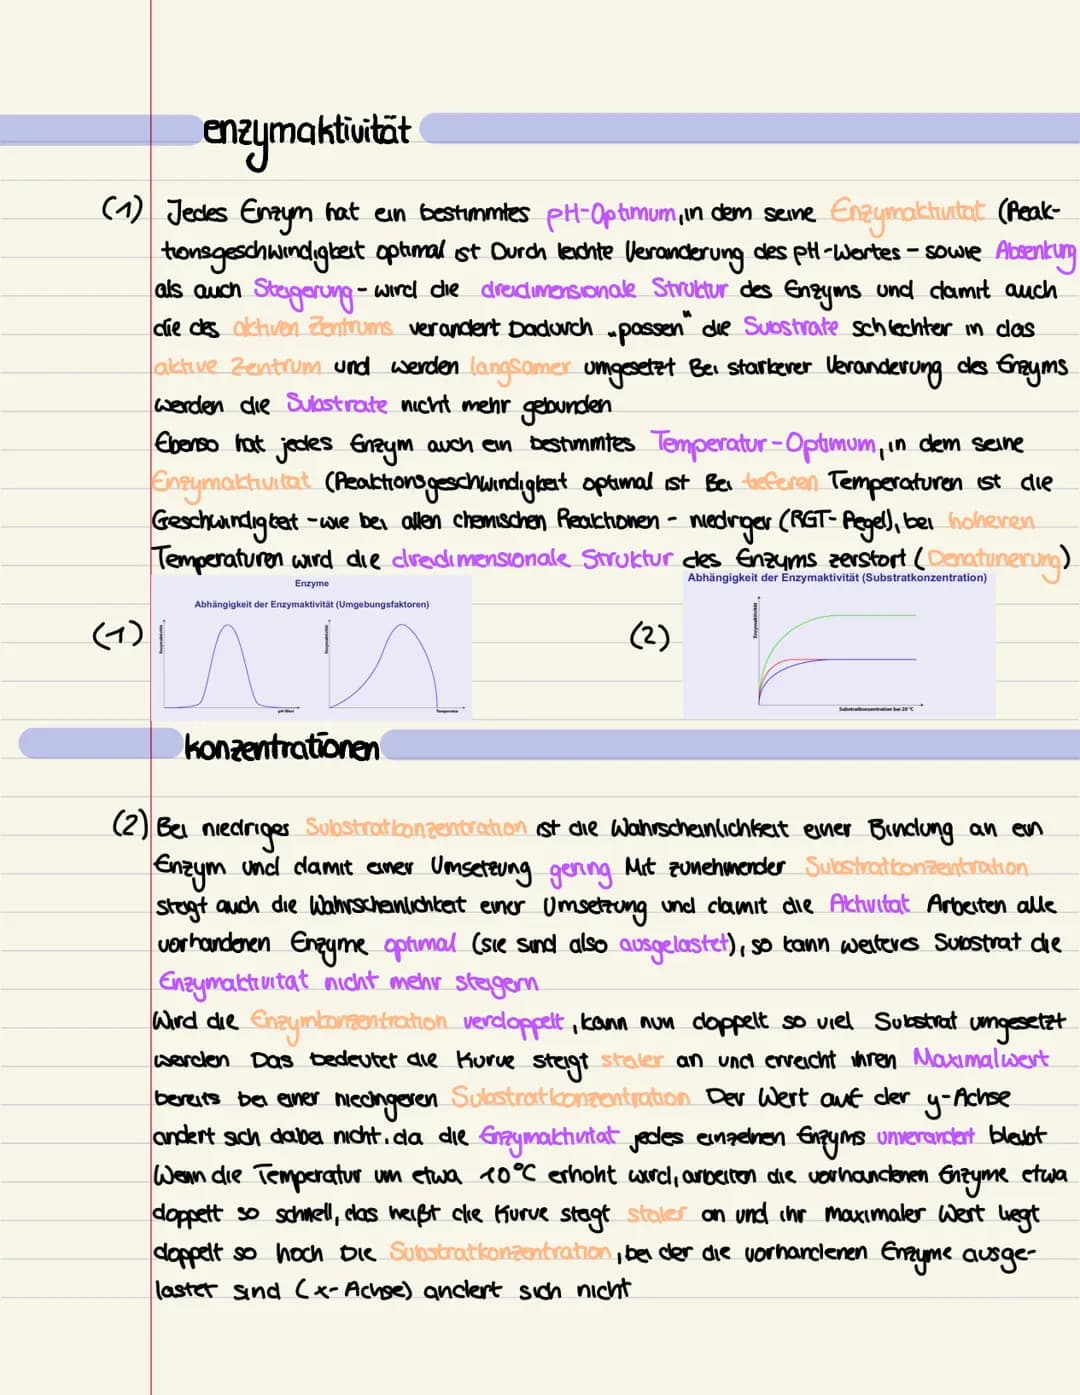 enzymaktivität
(1) Jedes Enzym hat ein bestimmtes pH-Optimum, in dem seine Enzymaktivitat (Reak-
tionsgeschwindigkeit optimal ist Durch leichte Veranderung des pH-Wertes - sowie Absenkung
als auch Steigerung - wird die dreidimensionale Struktur des Enzyms und damit auch
die des aktiven Zentrums verandert Dadurch „passen" die Substrate schlechter in das
aktive Zentrum und werden langsamer umgesetzt Bei starkerer Veranderung des Enzyms
werden die Substrate nicht mehr gebunden
Ebenso hat jedes Enzym auch ein bestimmtes Temperatur-Optimum, in dem seine
Enzymaktivitat (Reaktionsgeschwindigkeit optimal ist Bei tieferen Temperaturen ist die
Geschwindigkeit - wie bei allen chemischen Reaktionen - niedriger (RGT-Regel), bei hoheren
Temperaturen wird die dreidimensionale Struktur des Enzyms zerstort (Denaturierung)
Enzyme
Abhängigkeit der Enzymaktivität (Umgebungsfaktoren)
(1)
Enzymaktivität
pH-Wert
Enzymaktivität
Temperatur
Abhängigkeit der Enzymaktivität (Substratkonzentration)
(2)
Enzymaktivität
Substratkonzentration bei 20°C
konzentrationen
(2) Bei niedriges Substratkonzentration ist die Wahrscheinlichkeit einer Bindung an ein
Enzym und damit einer Umsetzung gering Mit zunehmender Substratkonzentration
steigt auch die Wahrscheinlichkeit einer Umsetzung und damit die Aktivitat Arbeiten alle
vorhandenen Enzyme optimal (sie sind also ausgelastet), so kann weiteres Substrat die
Enzymaktivitat nicht mehr steigern
Wird die Enzymkonzentration verdoppelt, kann nun doppelt so viel Substrat umgesetzt
werden Das bedeutet die Kurve steigt steiler an und erreicht ihren Maximalwert
bereits bei einer niedrigeren Substratkonzentration Der Wert auf der y-Achse
andert sich dabei nicht, da die Enzymaktivitat jedes einzelnen Enzyms unverandert bleibt
Wenn die Temperatur um etwa 10°C erhoht wird, arbeiten die vorhandenen Enzyme etwa
doppelt so schnell, das heißt die Kurve steigt steiler an und ihr maximaler Wert liegt
doppelt so hoch Die Substratkonzentration, bei der die vorhandenen Enzyme ausge-
lastet sind (x-Achse) andert sich nicht